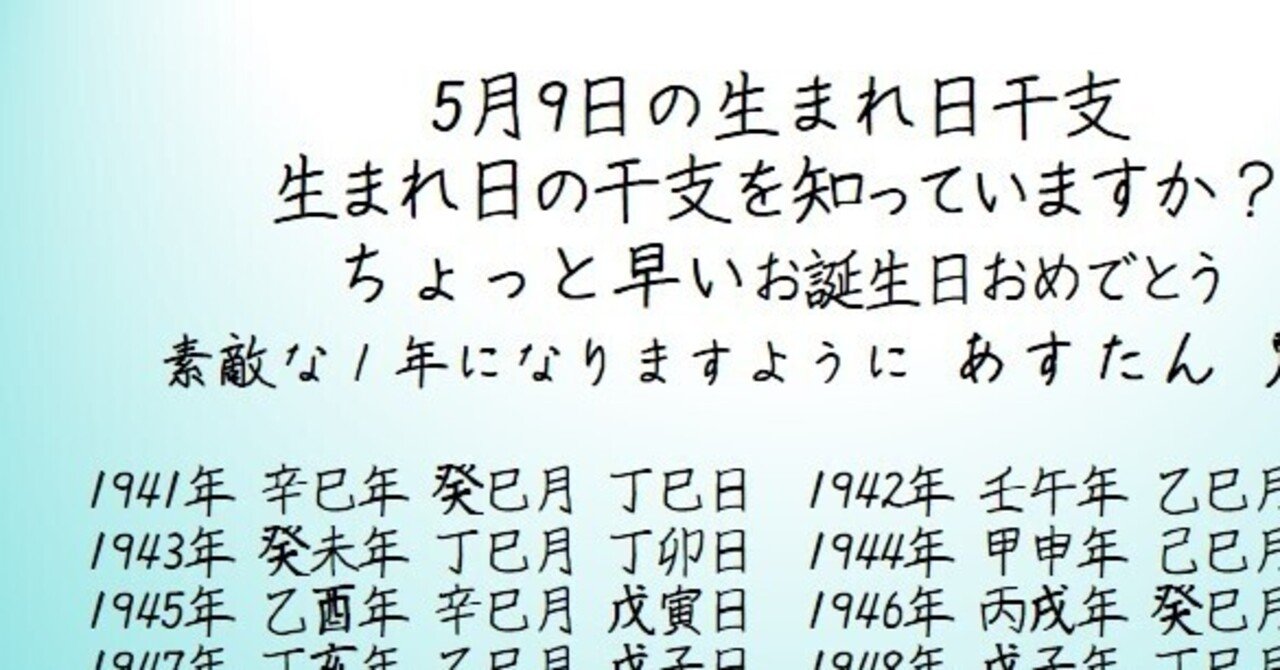 5月9日の生まれ日干支
生まれ日の干支を知っていますか？
ちょっと早いお誕生日おめでとう
素敵な1年になりますように あすたん
1941年 辛巳年 癸巳月 丁巳日 1942年 壬午年 乙巳月
1943年 癸未年 丁巳月 丁卯日 1944年 甲申年 己巳月
1945年 乙酉年 辛巳月 戊寅日 1946年 丙戌年 癸巳月
1947年 丁亥年 乙巳月 戊子日 1948年 戊子年 丁巳月